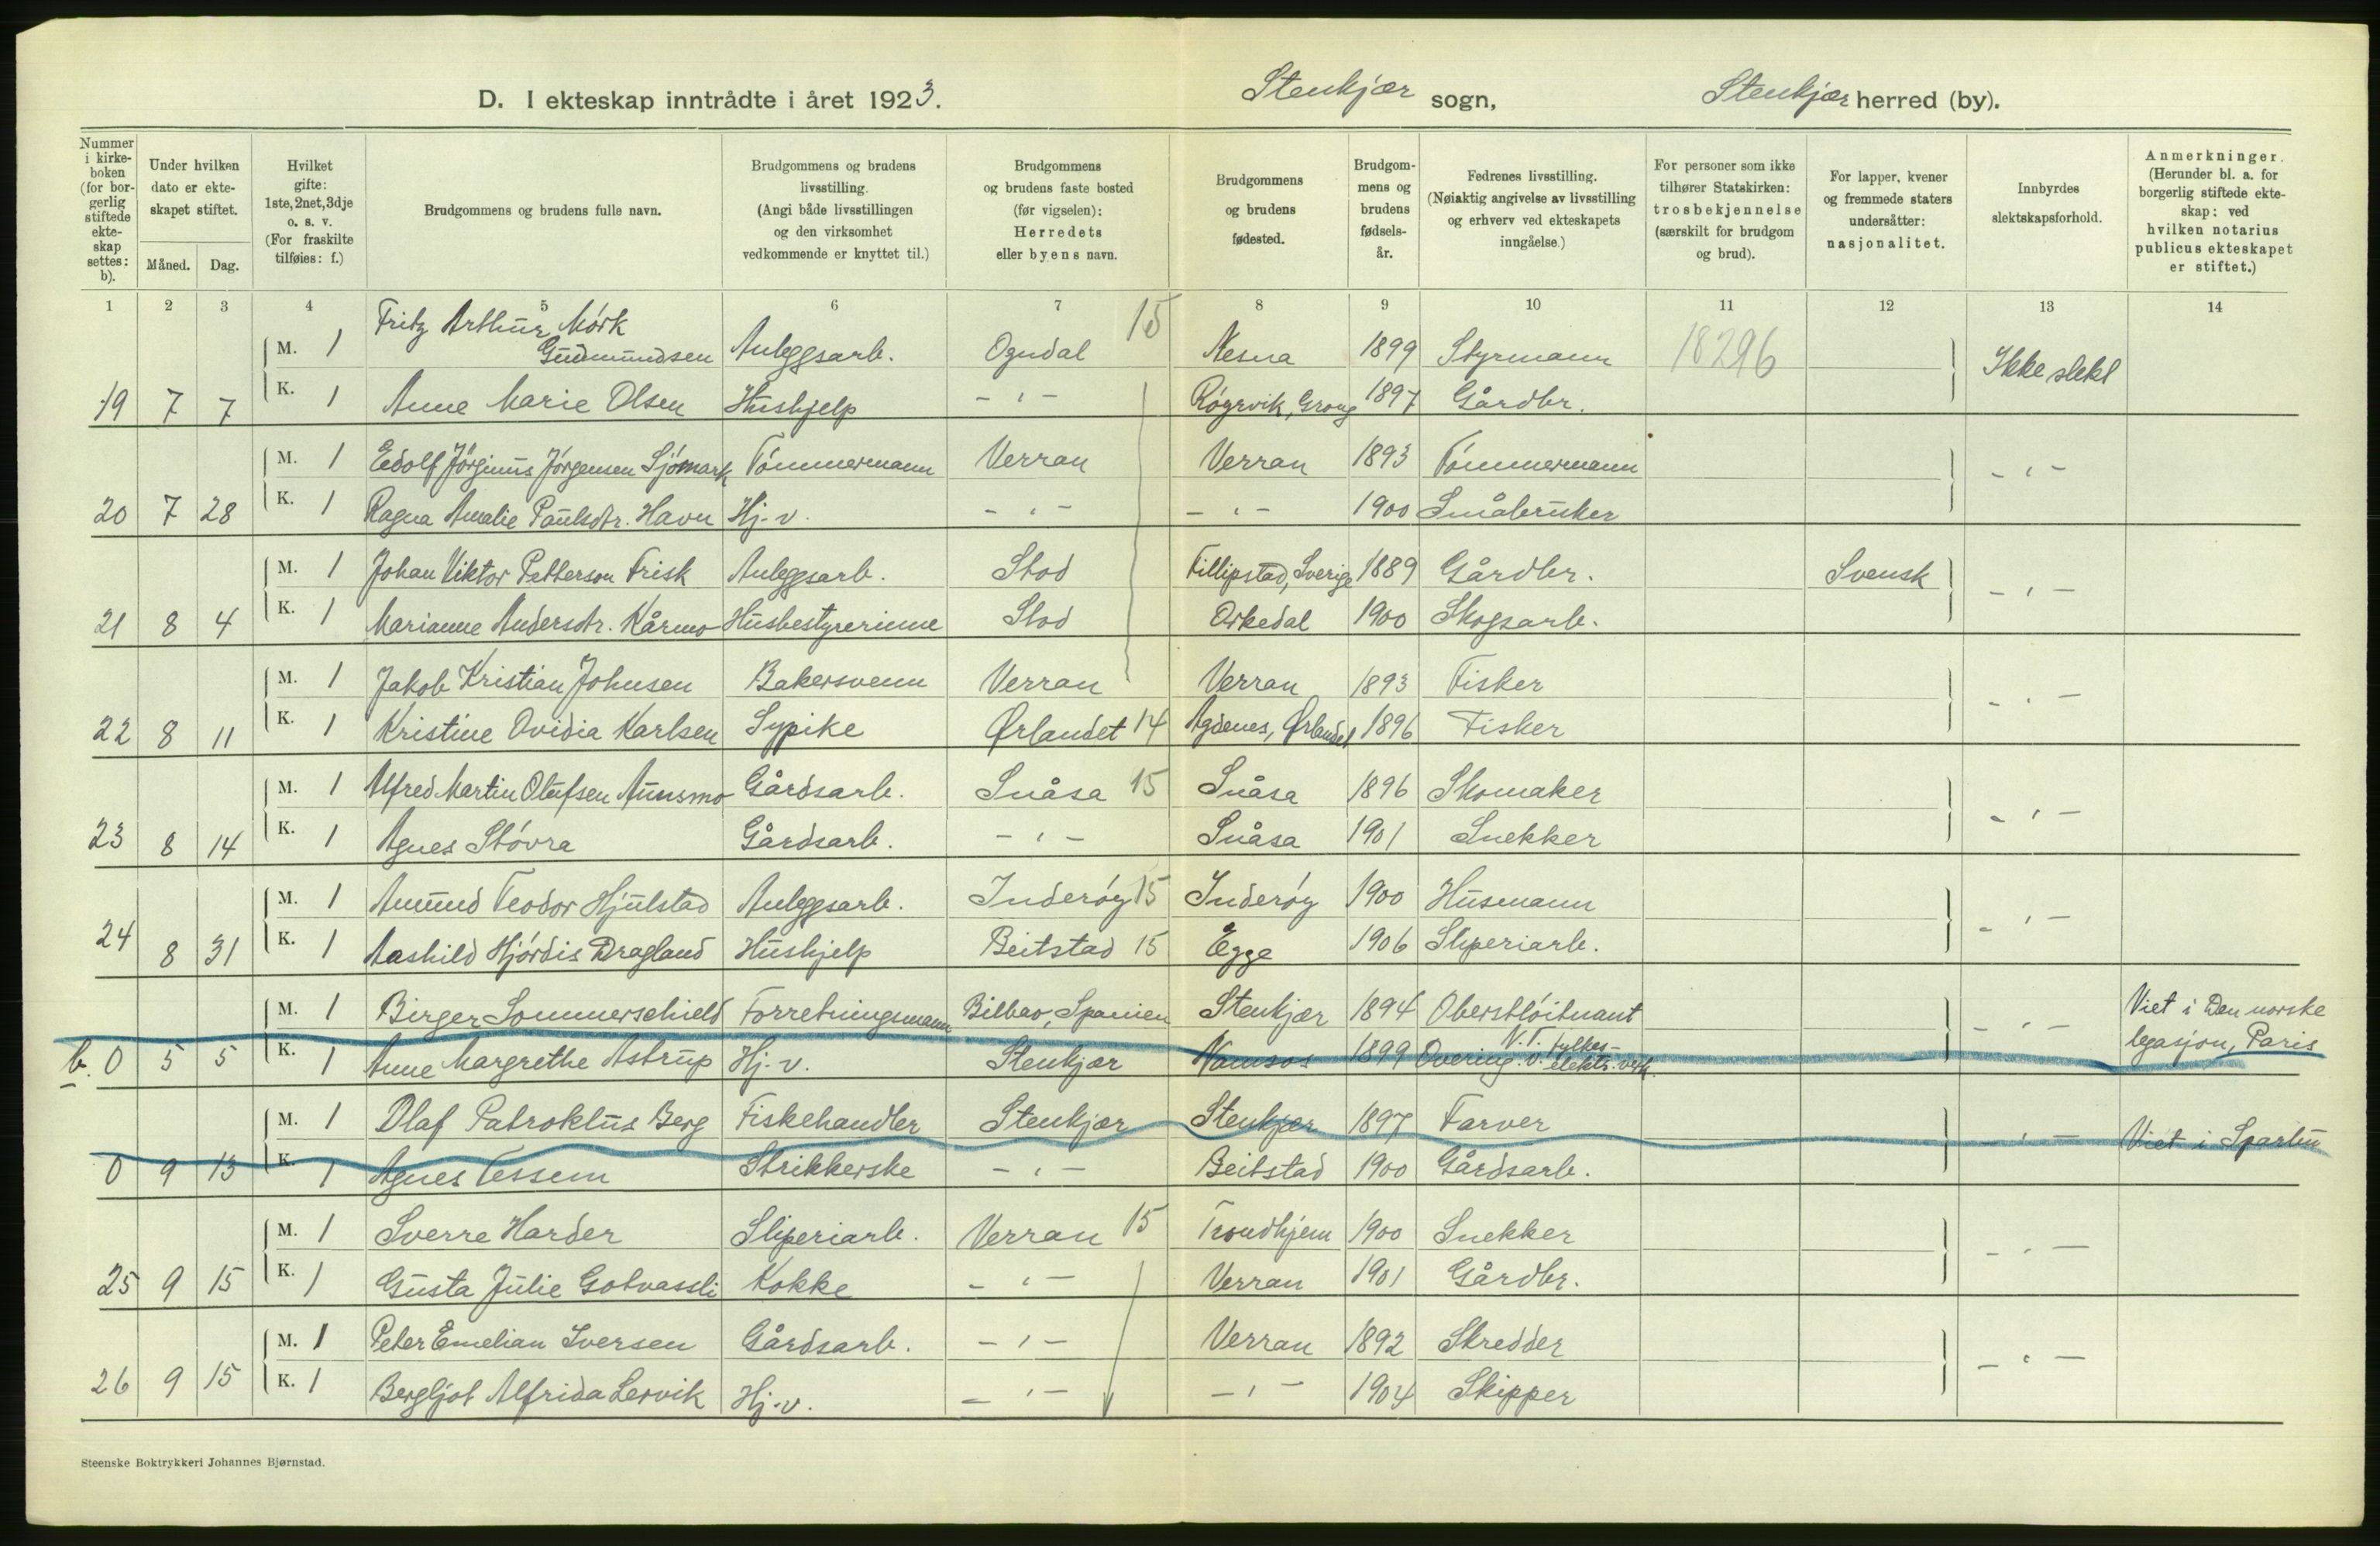 D. I ekteskap inntrådte i året 1923. Stenkjær sogn, Stenkjær herred (by).
Nummer i kirkeboken (for borgerlig stiftede ekteskap settes: b).
Under hvilken dato er ekteskapet stiftet.
Måned. Dag.
Hvilket gifte: 1ste, 2net, 3dje o. s. v. (For fraskilte tilføies: f.)
Brudgommens og brudens fulle navn.
Brudgommens og brudens livsstilling. (Angi både livsstillingen og den virksomhet vedkommende er knyttet til.)
Brudgommens og brudens faste bosted (før vigselen): Herredets eller byens navn.
Brudgommens og brudens fødested.
Brudgommens og brudens fødselsår.
Fedrenes livsstilling. (Nøiaktig angivelse av livsstilling og erhverv ved ekteskapets inngåelse.)
For personer som ikke tilhører Statskirken: trosbekjennelse (særskilt for brudgom og brud).
For lapper, kvener og fremmede staters undersåtter: nasjonalitet.
Innbyrdes slektskapsforhold.
Anmerkninger. (Herunder bl. a. for borgerlig stiftede ekteskap: ved hvilken notarius publicus ekteskapet er stiftet.)
1 2 3 4 5 6 7 8 9 10 11 12 13 14
M. 1 Fritz Arthur Mórk Gudmundsen Anleggsarb. Ogndal 15 Nesna 1899 Styrmann 18296 Ikke slekt
19 7 7 K. 1 Anne Marie Olsen Hushjelp - " - Róyrvik, Grong 1897 Gårdbr.
M. 1 Edolf Jórginus Jórgensen Sjómark Tómmermann Verran Verran 1893 Tómmermann - " -
20 7 28 K. 1 Ragna Amalie Paulsdtr. Havn Hj.-v. - " - - " - 1900 Småbruker
M. 1 Johan Viktor Petterson Frisk Anleggsarb. Stod Fillipstad, Sverige 1889 Gårdbr. Svensk - " -
21 8 4 K. 1 Marianne Andersdtr. Kårmo Husbestyrerinne Stod Orkedal 1900 Skogsarb.
M. 1 Jakob Kristian Johnsen Bakersvenn Verran Verran 1893 Fisker - " -
22 8 11 K. 1 Kristine Ovidia Karlsen Sypike Ørlandet 14 Agdenes, Ørlandet 1896 Fisker
M. 1 Alfred Martin Olufsen Aunsmo Gårdsarb. Snåsa 15 Snåsa 1896 Skomaker - " -
23 8 14 K. 1 Agnes Stóvra Gårdsarb. - " - Snåsa 1901 Snekker
M. 1 Amund Teodor Hjulstad Anleggsarb. Inderóy 15 Inderóy 1900 Husmann - " -
24 8 31 K. 1 Aashild Hjórdis Dragland Hushjelp Beitstad 15 Egge 1906 Sliperiarb.
M. 1 Birger Sommerschield Forretningsmann Bilbao, Spanien Stenkjær 1894 Oberstlóitnant - " - Viet i Den norske
b. 0 5 5 K. 1 Anne Margrethe Astrup Hj.-v. Stenkjær Namsos 1899 Overing. v. N.T. fylkes-elektr. verk. legasjon, Paris
M. 1 Olaf Patroklus Berg Fiskehandler Stenkjær Stenkjær 1897 Farver - " - Viet i Sparbu
0 9 13 K. 1 Agnes Tessem Strikkerske - " - Beitstad 1900 Gårdsarb.
M. 1 Sverre Harder Sliperiarb. Verran 15 Trondhjem 1900 Snekker - " -
25 9 15 K. 1 Gusta Julie Gotvassli Kokke - " - Verran 1901 Gårdbr.
M. 1 Peter Emelian Iversen Gårdsarb. - " - Verran 1892 Skredder - " -
26 9 15 K. 1 Bergljot Alfrida Lervik Hj.-v. - " - - " - 1904 Skipper
Steenske Boktrykkeri Johannes Bjørnstad.